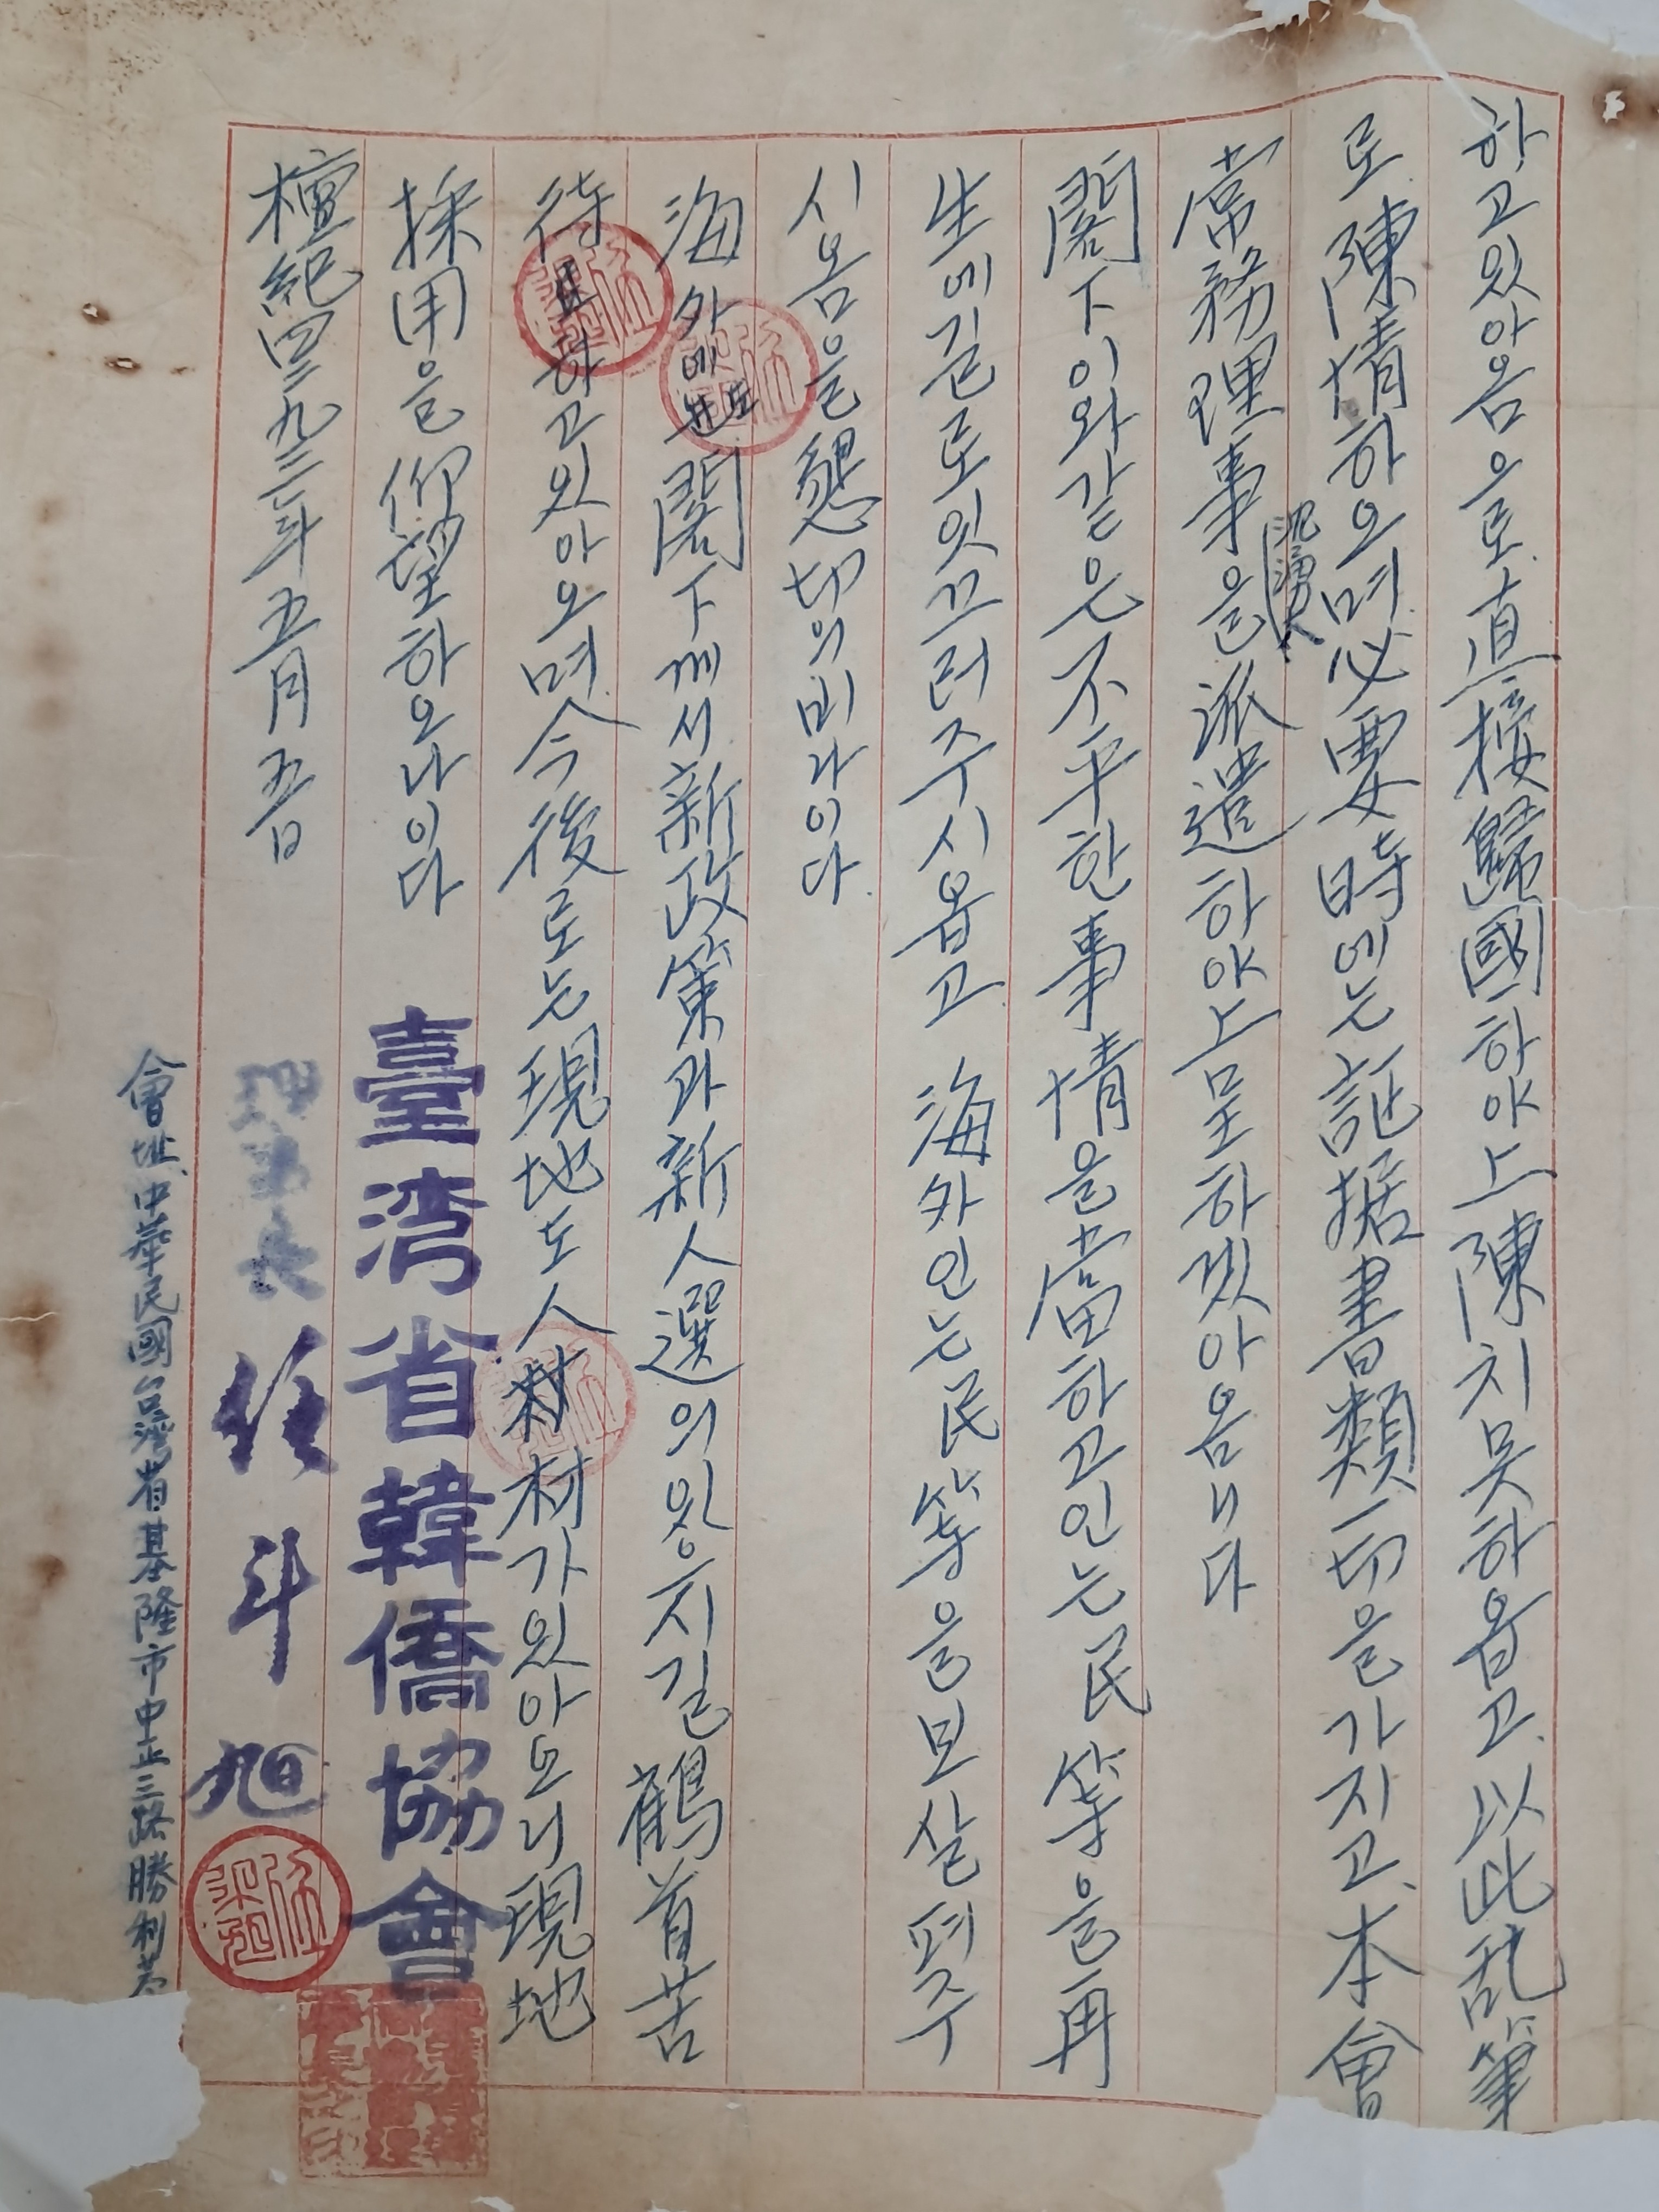 하고있아옴으로.直接歸國하야上陳치못하옵고.以此乱筆
로陳情하오며.必要時에는証据書類一切을가지고.本會
常務理事을派遣하야上呈하겠아옵니다
閣下이와같은不平한事情을當하고인는民等을再
生에길로잇끄러주시옵고 海外인는民等을보살펴주
시옴을懇切의비라이다.
海外에서도閣下께서新政策과新人選의있을지길鶴首苦
待하고있아오며.今後로는現地도人材가있아오니現地
採用을仰望하오나이다
檀紀四二九三年五月五日
臺灣省韓僑協會
理事長 任斗旭
會址.中華民國台灣省基隆市中正三路勝利巷